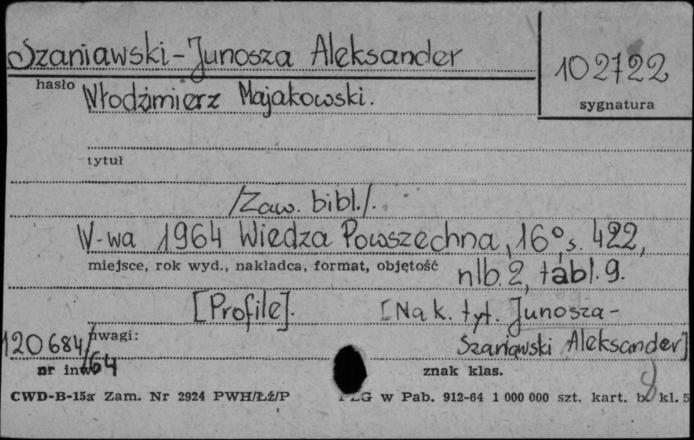 Szaniawski-Junosza Aleksander
102722
hasło
sygnatura
Włodzimierz Majakowski.
tytuł
/Zaw. bibl./.
W-wa 1964 Wiedza Powszechna, 16° s. 422,
miejsce, rok wyd., nakładca, format, objętość
nlb. 2, tabl. 9.
[Profile]. [Na k. tyt. Junosza-
uwagi:
Szaniawski Aleksander]
120684/64
nr inw.
znak klas.
8
CWD-B-15a Zam. Nr 2924 PWH/Łź/P
w Pab. 912-64 1 000 000 szt. kart. kl. 5